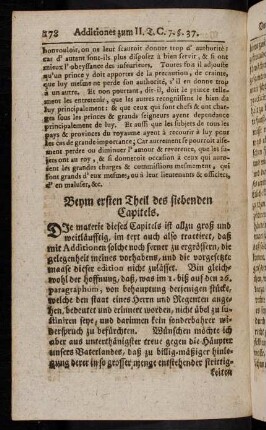 278 Additiones zum II. T. C. 7. §. 37.
bonvouloir, on ne leur scauroit donner trop d' authorité:
car d' autant sont-ils plus disposez à bien servir, & si ont
mieux l' obeyssance des inferieures. Toutes fois il adjouste
qu'un prince y doit apporter de la precaution, de crainte,
que luy mesme ne perde son authorité, s'il en donne trop
à un autre. Et non pourtant, dit-il, doit le prince telle-
ment les entretenir, que les autres recognoissent le bien da
luy principalement; & que ceux qui sont chefs & ont char-
ges sous les princes & grands seigneurs ayent dependence
principalement de luy. Et aussi que les subjets de tous les
pays & provinces du royaume ayent à recourir à luy pour
les cas de grande importance; Car autrement se pourroit aise-
ment perdre ou diminuer l' amour & reverence, que les su-
jets ont au roy, & si domtoroit occasion à ceux qui au-
sent les grandes charges & commissions mesmement, qui
sont grands d' eux mesmes, ou à leur lieutenants & officiers,
d' en maluser, &c.
Beym ersten Theil des siebenden
Capitels.
DIe materie dieses Capitels ist allzu groß und
weitläufftig, im text auch also tractiret, daß
mit Additionen solche noch ferner zu ergrössern, die
gelegenheit meines vorhabens, und die vorgesetzte
maase dieser edition nicht zulässet. Bin gleich
wohl der hoffnung, daß, was im 1. biß auf den 26.
paragraphum, von behauptung derjenigen stücke,
welche den staat eines Herrn und Regenten ange-
hen, bedeutet und erinnert worden, nicht übel zu fu-
ndiren seye, und darinnen kein sonderbarer wi-
derspruch zu befürchten. Wünschen möchte ich
aber aus unterthänigster treue gegen die Häupter
unsers Vaterlandes, daß zu billig-mäßiger hinle-
gung derer in so grosser menge entstehender streitig-
keiten